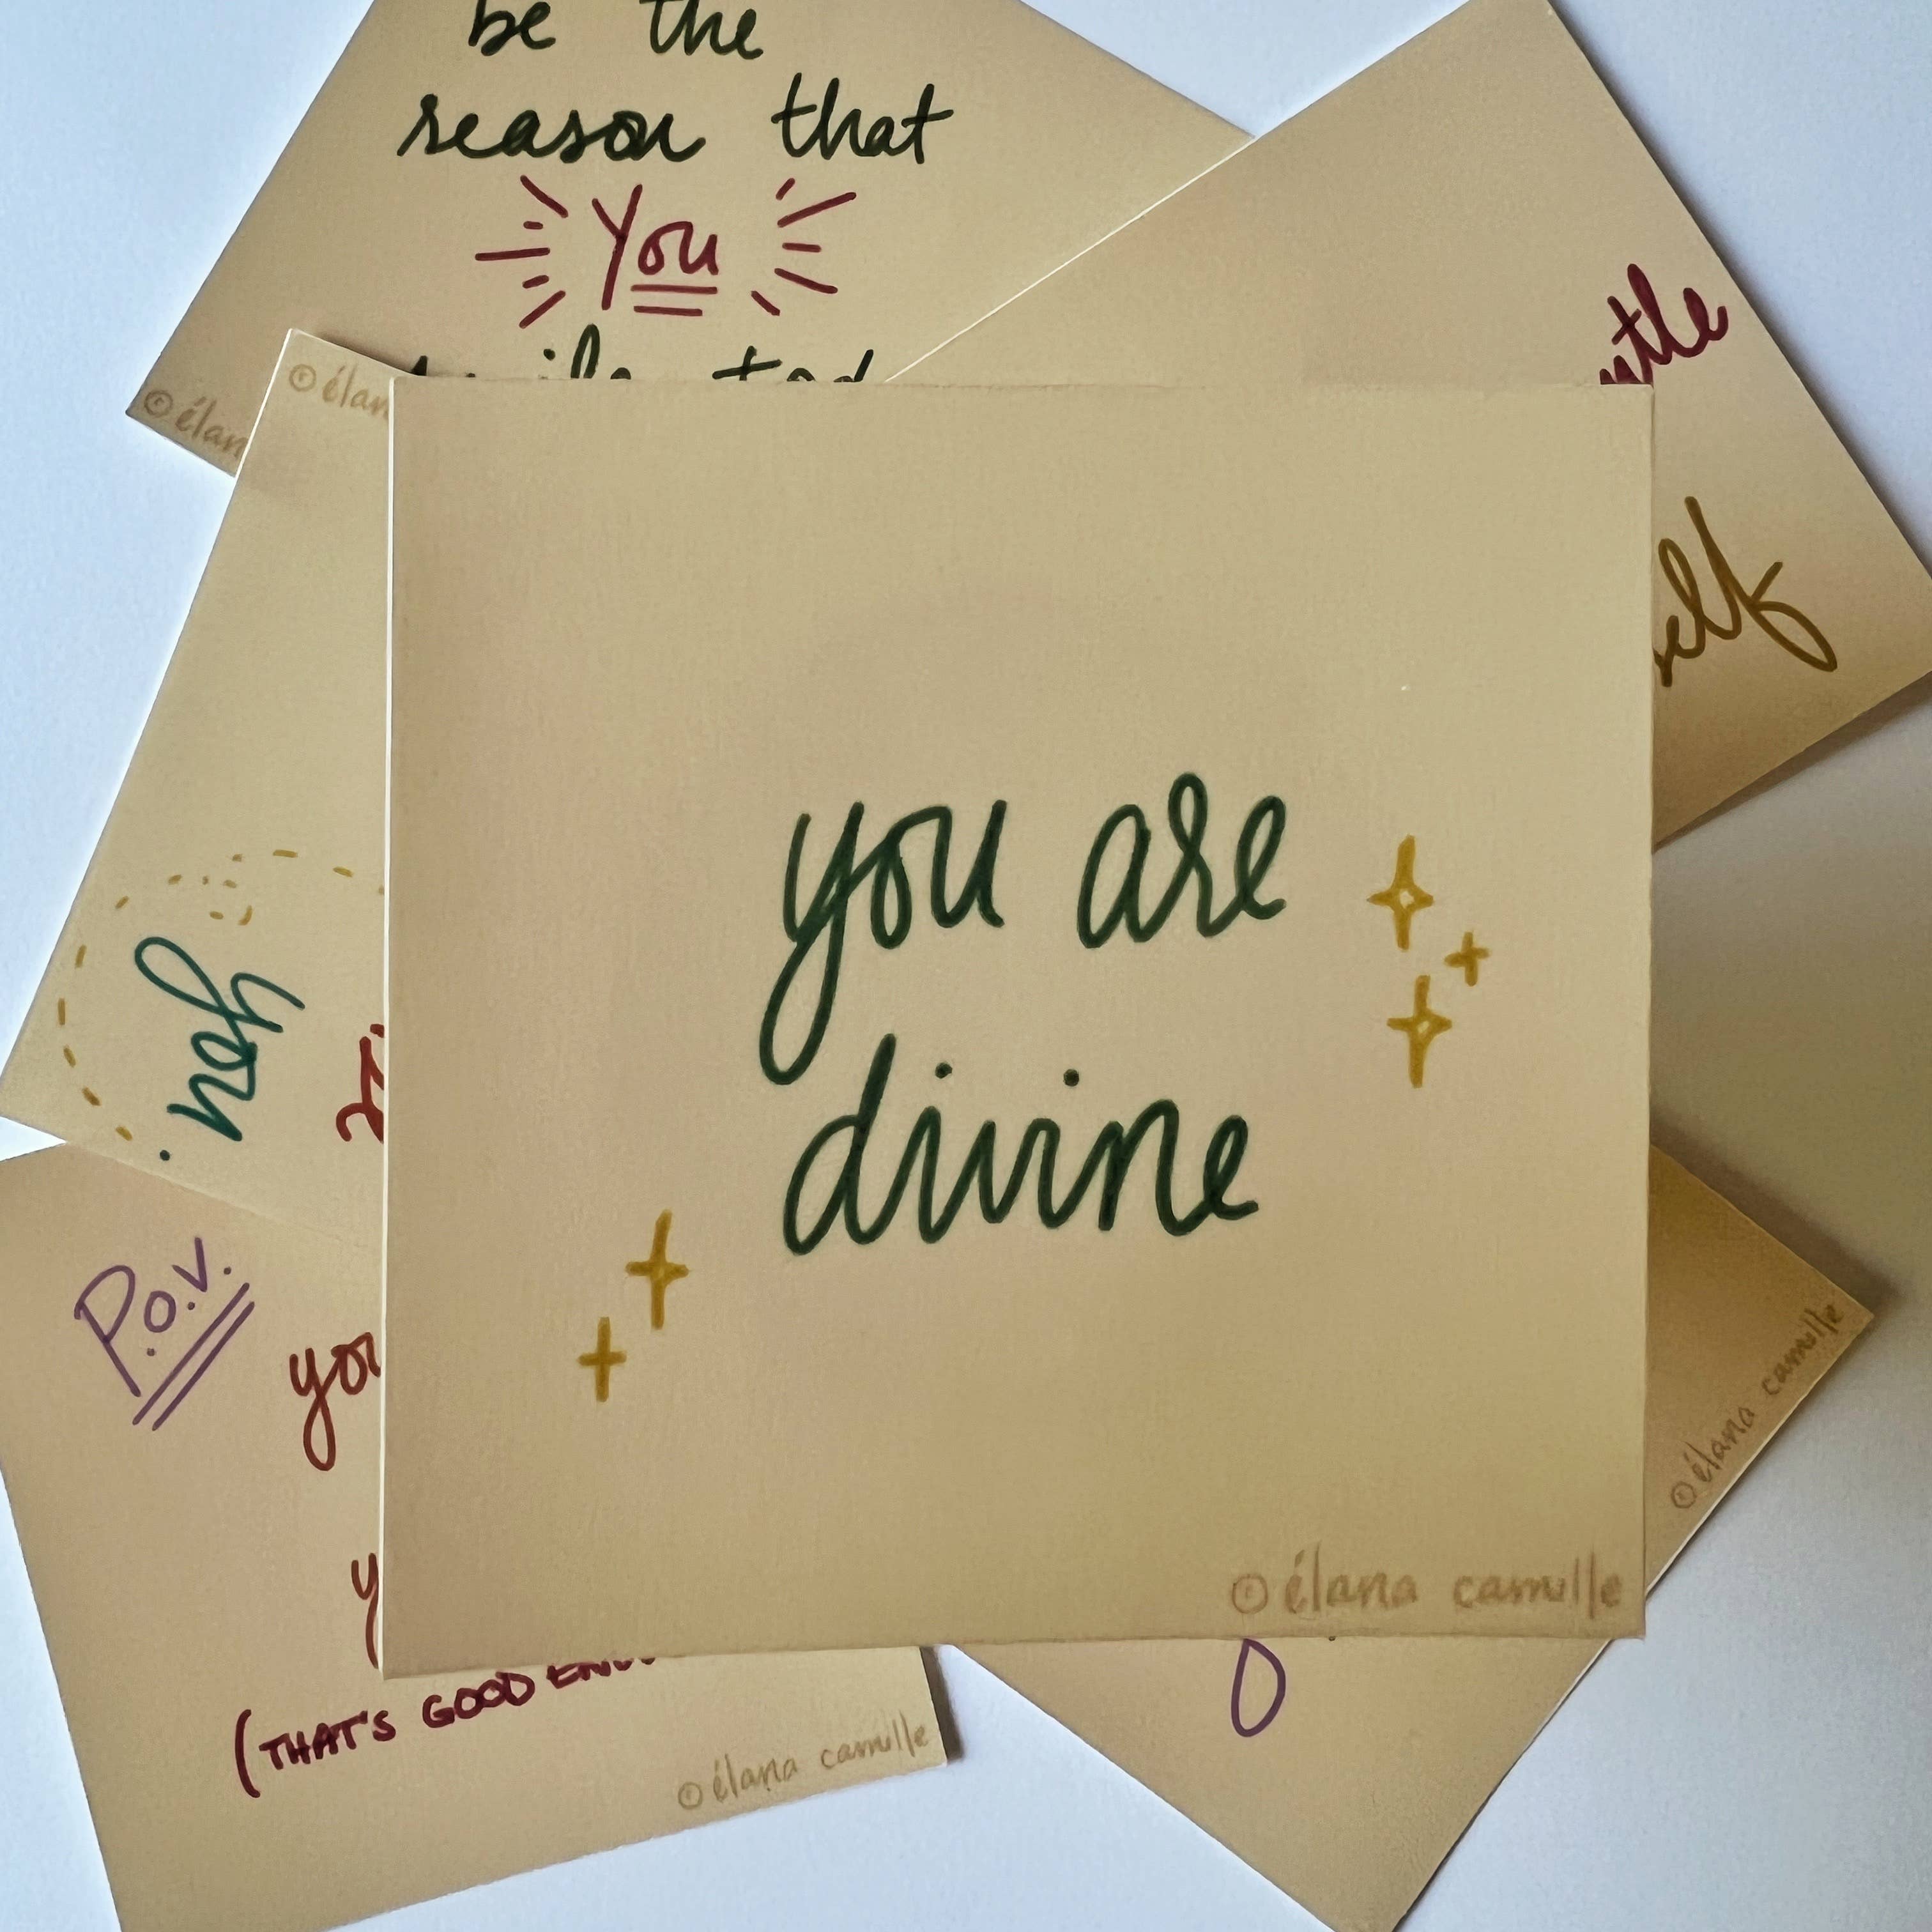 be the
reason that
You
© élan
© élan
you.
you are
divine
© élana camille
P.o.v.
(THAT'S GOOD
© élana camille
© élana camille